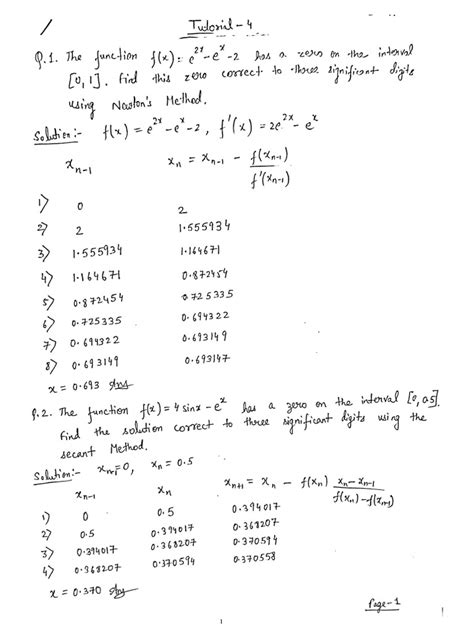 Tutorial - 4
Q.1. The function f(x) = e^{2x} - e^x - 2 has a zero on the interval
[0,1]. find this zero correct to three significant digits
using Newton's Method.
Solution:- f(x) = e^{2x} - e^x - 2, f'(x) = 2e^{2x} - e^x
x_{n-1} x_n = x_{n-1} - f(x_{n-1}) / f'(x_{n-1})
1) 0 2
2) 2 1.555934
3) 1.555934 1.164671
4) 1.164671 0.872454
5) 0.872454 0.725335
6) 0.725335 0.694322
7) 0.694322 0.693149
8) 0.693149 0.693147
x = 0.693 Ans
Q.2. The function f(x) = 4 sinx - e^x has a zero on the interval [0, 0.5].
find the solution correct to three significant digits using the
secant Method.
Solution:- x_{n-1} = 0, x_n = 0.5
x_{n-1} x_n x_{n+1} = x_n - f(x_n) (x_n - x_{n-1}) / (f(x_n) - f(x_{n-1}))
1) 0 0.5 0.394017
2) 0.5 0.394017 0.368207
3) 0.394017 0.368207 0.370594
4) 0.368207 0.370594 0.370558
x = 0.370 Ans
Page-1